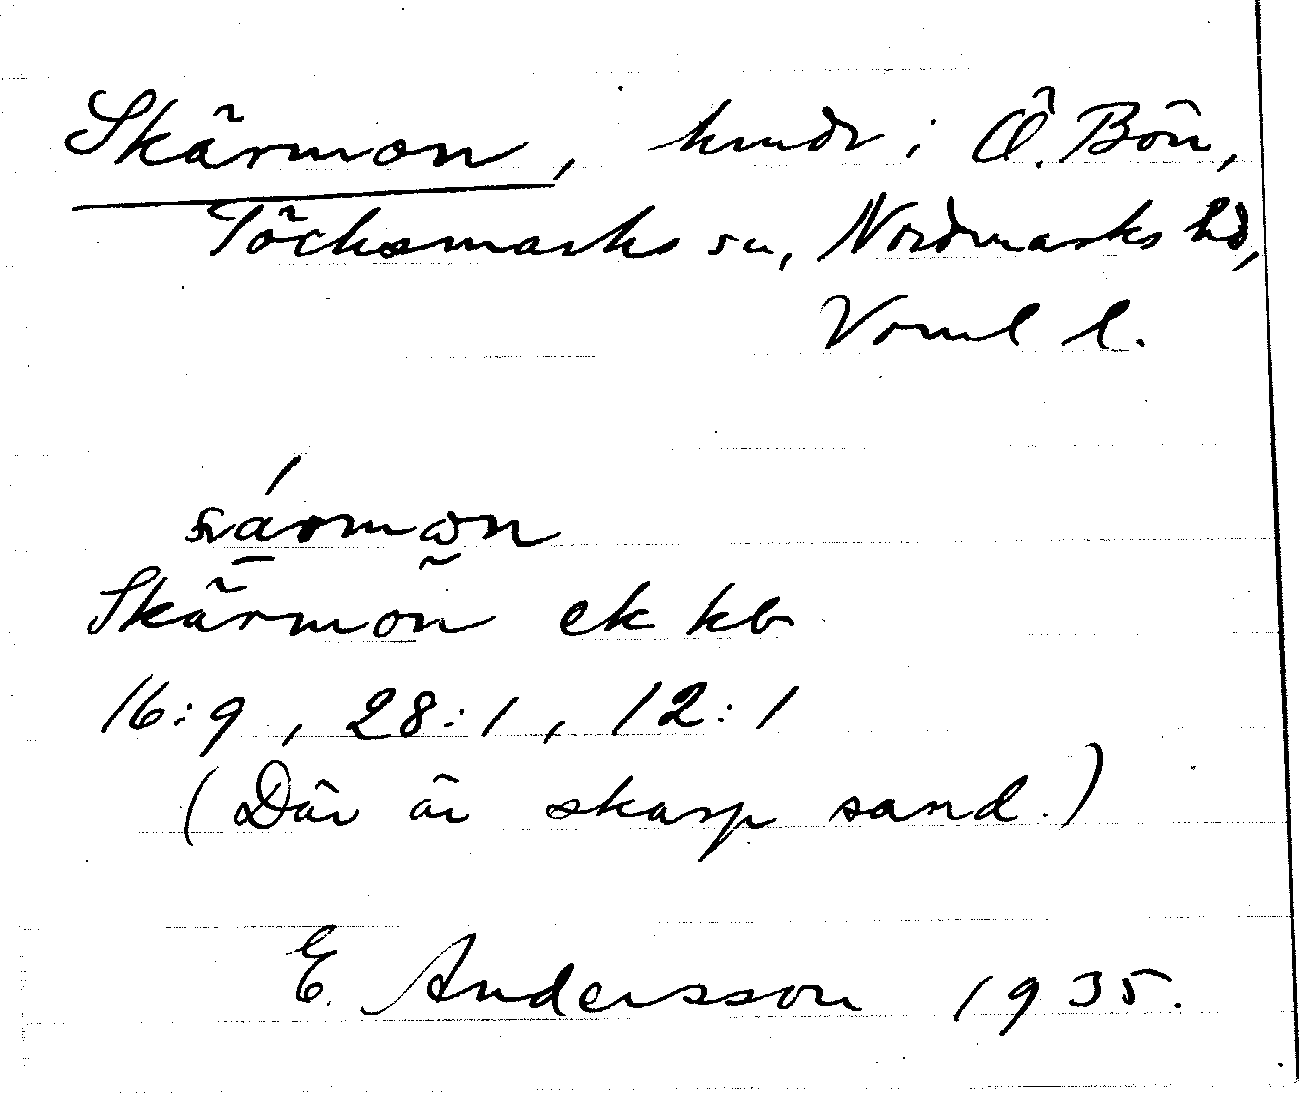 Skärmon, hmdr i Ö. Bön,
Töcksmarks sn, Nordmarks hd,
Värml l.
Skärmon ek kb
16:9, 28:1, 12:1
(Där är skarp sand.)
E. Andersson 1935.